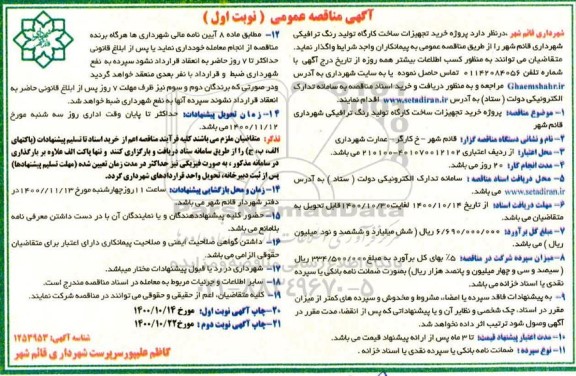 آگهی مناقصه عمومی ( نوبت اول )
شهرداری قائم شهر ،درنظر دارد پروژه خرید تجهیزات ساخت کارگاه تولید رنگ ترافیکی
شهرداری قائم شهر را از طریق مناقصه عمومی به پیمانکاران واجد شرایط واگذار نماید.
متقاضیان می توانند به منظور کسب اطلاعات بیشتر همه روزه از تاریخ درج آگهی با
شماره تلفن ۰۱۱۴۲۰۸۴۰۵۶ تماس حاصل نموده یا به سایت شهرداری به آدرس
Ghaemshahr.ir مراجعه و به منظور دریافت و خرید اسناد مناقصه به سامانه تدارک
الکترونیکی دولت ( ستاد ) به آدرس www.setadiran.ir اقدام نماید.
۱– موضوع مناقصه: پروژه خرید تجهیزات ساخت کارگاه تولید رنگ ترافیکی شهرداری
قائم شهر
۲– نام و نشانی دستگاه مناقصه گزار: قائم شهر – خ کارگر – عمارت شهرداری
۳– محل اعتبار: از ردیف اعتباری ۲۰۱۷۰۰۱۲۱۰۲–۲۱۰۱۰۰ می باشد.
۴– مدت انجام کار: ۲۰ روز می باشد.
۵– محل دریافت اسناد مناقصه: سامانه تدارک الکترونیکی دولت ( ستاد ) به آدرس
www.setadiran.ir می باشد.
۶– مهلت دریافت اسناد: از تاریخ ۱۴۰۰/۱۰/۱۴ لغایت ۱۴۰۰/۱۰/۳۰ قابل تحویل به
متقاضیان می باشد.
۷– مبلغ کل برآورد: ۶/۶۹۰/۰۰۰/۰۰۰ ریال ( شش میلیارد و ششصد و نود میلیون
ریال ) می باشد.
۸– میزان سپرده شرکت در مناقصه: ۵٪ بهای کل برآورد به مبلغ ۳۳۴/۵۰۰/۰۰۰ ریال
( سیصد و سی و چهار میلیون و پانصد هزار ریال) بصورت ضمانت نامه بانکی یا سپرده
نقدی یا اسناد خزانه می باشد.
۹– به پیشنهادات فاقد سپرده یا امضاء، مشروط و مخدوش و سپرده های کمتر از میزان
مقرر در اسناد، چک شخصی و نظایر آن و یا پیشنهاداتی که پس از انقضاء، مدت مقرر در
آگهی وصول شود ترتیب اثر داده نخواهد شد.
۱۰– مدت اعتبار پیشنهاد قیمت: تا ۳ ماه پس از ارائه پیشنهاد قیمت می باشد.
۱۱– نوع سپرده : ضمانت نامه بانکی یا سپرده نقدی یا اسناد خزانه .
۱۲– مطابق ماده ۸ آیین نامه مالی شهرداری ها هرگاه برنده
مناقصه از انجام معامله خودداری نماید یا پس از ابلاغ قانونی
حداکثر تا ۷ روز حاضر به انعقاد قرارداد نشود سپرده به نفع
شهرداری ضبط و قرارداد با نفر بعدی منعقد خواهد گردید
ودر صورتی که برندگان دوم و سوم نیز ظرف مهلت ۷ روز پس از ابلاغ قانونی حاضر به
انعقاد قرارداد نشوند سپرده آنها به نفع شهرداری ضبط خواهد شد.
۱۳– زمان تحویل پیشنهادات: حداکثر تا پایان وقت اداری روز سه شنبه مورخ
۱۴۰۰/۱۱/۱۲ می باشد.
تذکر: متقاضیان ملزم می باشند کلیه فرآیند مناقصه اعم از خرید اسناد تا تسلیم پیشنهادات (پاکتهای
الف، ب، ج) را از طریق سامانه ستاد دریافت و بارگزاری کنند و تنها پاکت الف علاوه بر بارگذاری
در سامانه مذکور، به صورت فیزیکی نیز حداکثر در مدت زمان تعیین شده (مهلت تسلیم پیشنهادها)
پس از ثبت دبیرخانه، تحویل واحد قراردادهای شهرداری گردد.
۱۴– زمان و محل بازگشایی پیشنهادات: ساعت ۱۱ روز چهارشنبه مورخ ۱۴۰۰/۱۱/۱۳ در
دفتر شهردار قائم شهر می باشد.
۱۵– حضور کلیه پیشنهاددهندگان و یا نمایندگان آن با در دست داشتن معرفی نامه
بلامانع می باشد.
۱۶– داشتن گواهی صلاحیت ایمنی و صلاحیت پیمانکاری دارای اعتبار برای متقاضیان
حقوقی الزامی می باشد.
۱۷– شهرداری در رد یا قبول پیشنهادات مختار میباشد.
۱۸– سایر اطلاعات و جزئیات مربوط به معامله در اسناد مناقصه مندرج است.
۱۹– کلیه متقاضیان، اعم از حقیقی و حقوقی می توانند در مناقصه شرکت نمایند.
۲۰–چاپ آگهی نوبت اول: مورخ ۱۴۰۰/۱۰/۱۴
۲۱–چاپ آگهی نوبت دوم : مورخ ۱۴۰۰/۱۰/۲۲
شناسه آگهی: ۱۲۵۳۹۵۳
کاظم علیپور سرپرست شهرداری قائم شهر
۰۲۱-۸۸۳۴۹۶۷۰-۵